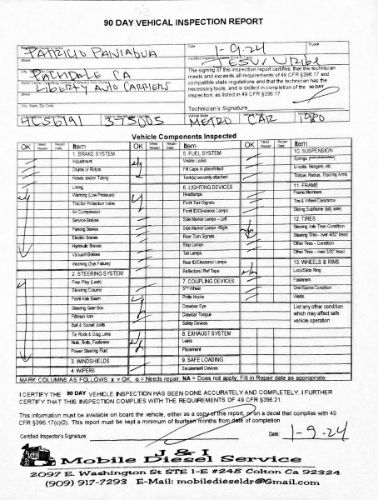 90 DAY VEHICAL INSPECTION REPORT
PATRICIO PANIAGUA
Date
1-9-24
JESUS URIBE
The signing of this inspection report certifies that the technician
meets and exceeds all requirements of 49 CFR §396.17 and
compatible state regulations and that the technician has the
necessary tools, and is skilled in completion of the 90 DAY
inspection, as listed in 49 CFR §396.17
PALMDALE CA
LIBERTY AUTO CARRIERS
City, State, Zip Code
Technician's Signature
4C56191 375005 METRO CAR 1980
Vehicle Components Inspected
OK Item OK Item OK Item
1. BRAKE SYSTEM 5. FUEL SYSTEM 10. SUSPENSION
Adjustment Visible Leaks Springs
Drums or Rotors Fill Caps in place/vented U-bolts, Hangers, etc.
Hoses and/or Tubing Tank(s) securely attached Torque, Radius, Tracking Arms
Lining 6. LIGHTING DEVICES 11. FRAME
Warning (Low Pressure) Headlamps Frame Members
Tractor Protection Valve Front Turn Signals Tire & Wheel Clearance
Air Compressor Front ID/Clearance Lamps Sliding Subframe (adj. axle)
Service Brakes Side Marker Lamps - Left 12. TIRES
Parking Brakes Side Marker Lamps - Right Steering Axle Tire Condition
Electric Brakes Rear Turn Signals Steering Tires - over 4/32" tread
Hydraulic Brakes Stop Lamps Other Tires - Condition
Vacuum Brakes Tail Lamps Other Tires - over 2/32" tread
Warning (Sys Failure) Rear ID/Clearance Lamps 13. WHEELS & RIMS
2. STEERING SYSTEM Reflectors/Ref Tape Lock/Slide Ring
Free Play (Lash) 7. COUPLING DEVICES Fasteners
Steering Column 5th Wheel Disc/Spoke Condition
Front Axle Beam Pintle Hooks Welds
Steering Gear Box Drawbar Eye List any other condition
Pitman Arm Drawbar Tongue which may affect safe
Ball & Socket Joints Safety Devices vehicle operation
Tie Rods & Drag Links 8. EXHAUST SYSTEM
Nuts, Bolts, Fasteners Leaks
Power Steering Fluid Placement
3. WINDSHIELDS 9. SAFE LOADING
4. WIPERS Securement Devices
MARK COLUMNS AS FOLLOWS: x = OK, o = Needs repair, NA = Does not apply, Fill in Repair date as appropriate
I CERTIFY THE 90 DAY VEHICLE INSPECTION HAS BEEN DONE ACCURATELY AND COMPLETELY. I FURTHER
CERTIFY THAT THIS INSPECTION COMPLIES WITH THE REQUIREMENTS OF 49 CFR §396.21.
This information must be available on board the vehicle, either as a copy of this report, or a decal that complies with 49
CFR §396.17(c)(2). This report must be kept a minimum of fourteen months from date of completion
Certified Inspector's Signature Date: 1-9-24
J & I
Mobile Diesel Service
2097 E. Washington St STE 1-E #248 Colton Ca 92324
(909) 917-7293 E-Mail: mobiledieseldr@Gmail.com